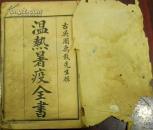 古吳周禹載先生輯
溫熱暑疫全書